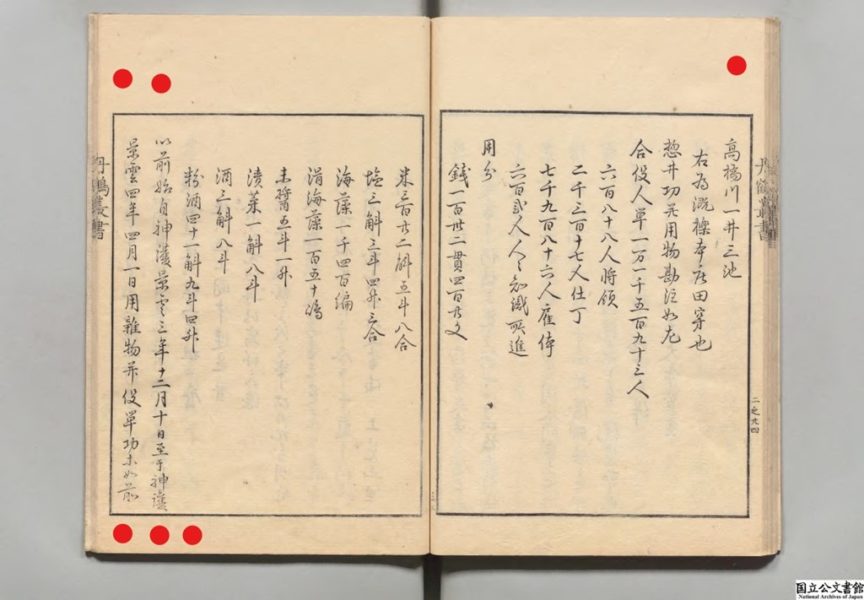 丹鶴叢書
高橋川一井三池
右為漑櫟本庄田穿也
惣井功并用物勘注如左
合役人單一万一千五百九十三人
六百八十八人將領
二千三百十七人仕丁
七千九百八十六人雇
六百弐人人々知識所進
用分
銭一百廿二貫四百廿文
二之廿四
米三百廿二斛五斗八合
塩三斛三斗四升三合
海藻一千四百編
滑海藻一百五十嶋
末醤五斗一升
漬菜一斛八斗
酒三斛八斗
粉酒四十一斛九斗四升
以前始自神護景雲三年十二月十日至于神護
景雲四年四月一日用雜物并役單功如前
丹鶴叢書
国立公文書館
National Archives of Japan